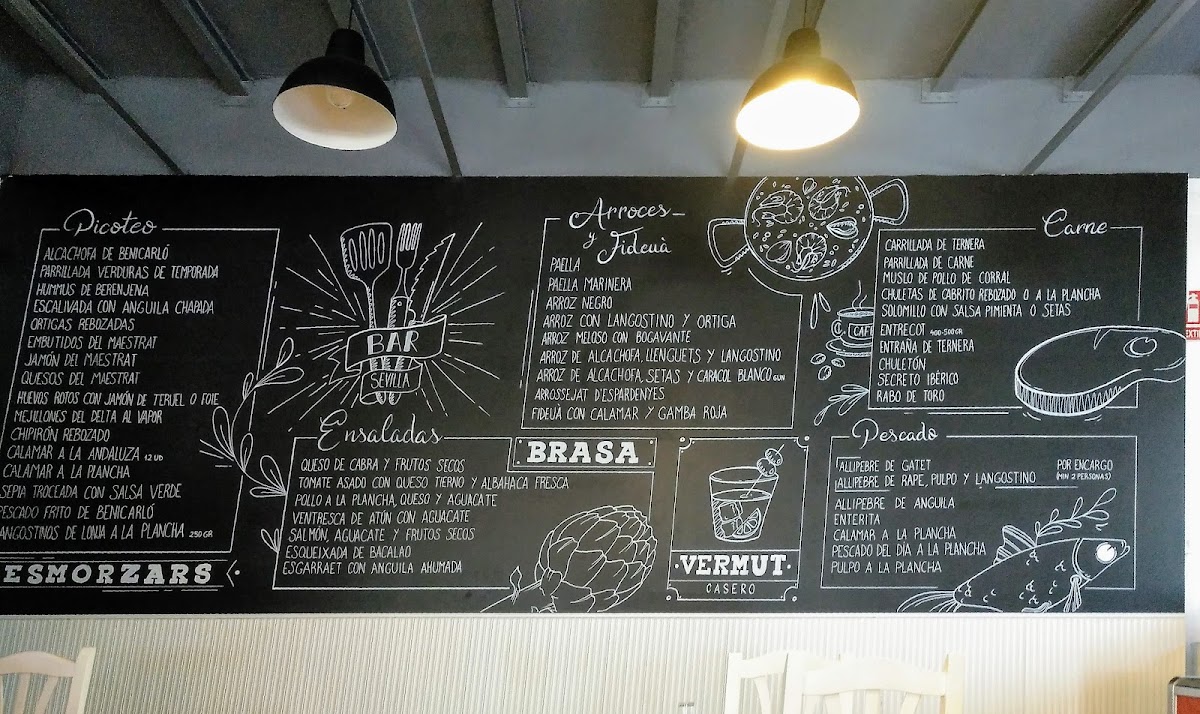 Picoteo
ALCACHOFA DE BENICARLÓ
PARRILLADA VERDURAS DE TEMPORADA
HUMMUS DE BERENJENA
ESCALIVADA CON ANGUILA CHAPADA
ORTIGAS REBOZADAS
EMBUTIDOS DEL MAESTRAT
JAMÓN DEL MAESTRAT
QUESOS DEL MAESTRAT
HUEVOS ROTOS CON JAMÓN DE TERUEL O FOIE
MEJILLONES DEL DELTA AL VAPOR
CHIPIRÓN REBOZADO
CALAMAR A LA ANDALUZA 12 UD
CALAMAR A LA PLANCHA
SEPIA TROCEADA CON SALSA VERDE
PESCADO FRITO DE BENICARLÓ
LANGOSTINOS DE LONJA A LA PLANCHA 250 GR
ESMORZARS
BAR
SEVILLA
Ensaladas
QUESO DE CABRA Y FRUTOS SECOS
TOMATE ASADO CON QUESO TIERNO Y ALBAHACA FRESCA
POLLO A LA PLANCHA, QUESO Y AGUACATE
VENTRESCA DE ATÚN CON AGUACATE
SALMÓN, AGUACATE Y FRUTOS SECOS
ESQUEIXADA DE BACALAO
ESGARRAET CON ANGUILA AHUMADA
Arroces
y Fideuà
PAELLA
PAELLA MARINERA
ARROZ NEGRO
ARROZ CON LANGOSTINO Y ORTIGA
ARROZ MELOSO CON BOGAVANTE
ARROZ DE ALCACHOFA, LLENGUETS Y LANGOSTINO
ARROZ DE ALCACHOFA, SETAS Y CARACOL BLANCO
ARROSSEJAT D'ESPARDENYES
FIDEUÀ CON CALAMAR Y GAMBA ROJA
BRASA
VERMUT
CASERO
CAFÉ
Carne
CARRILLADA DE TERNERA
PARRILLADA DE CARNE
MUSLO DE POLLO DE CORRAL
CHULETAS DE CABRITO REBOZADO O A LA PLANCHA
SOLOMILLO CON SALSA PIMIENTA O SETAS
ENTRECOT 400-500 GR
ENTRAÑA DE TERNERA
CHULETÓN
SECRETO IBÉRICO
RABO DE TORO
Pescado
ALLIPEBRE DE GATET
ALLIPEBRE DE RAPE, PULPO Y LANGOSTINO
POR ENCARGO
(MIN 2 PERSONAS)
ALLIPEBRE DE ANGUILA
ENTERITA
CALAMAR A LA PLANCHA
PESCADO DEL DÍA A LA PLANCHA
PULPO A LA PLANCHA